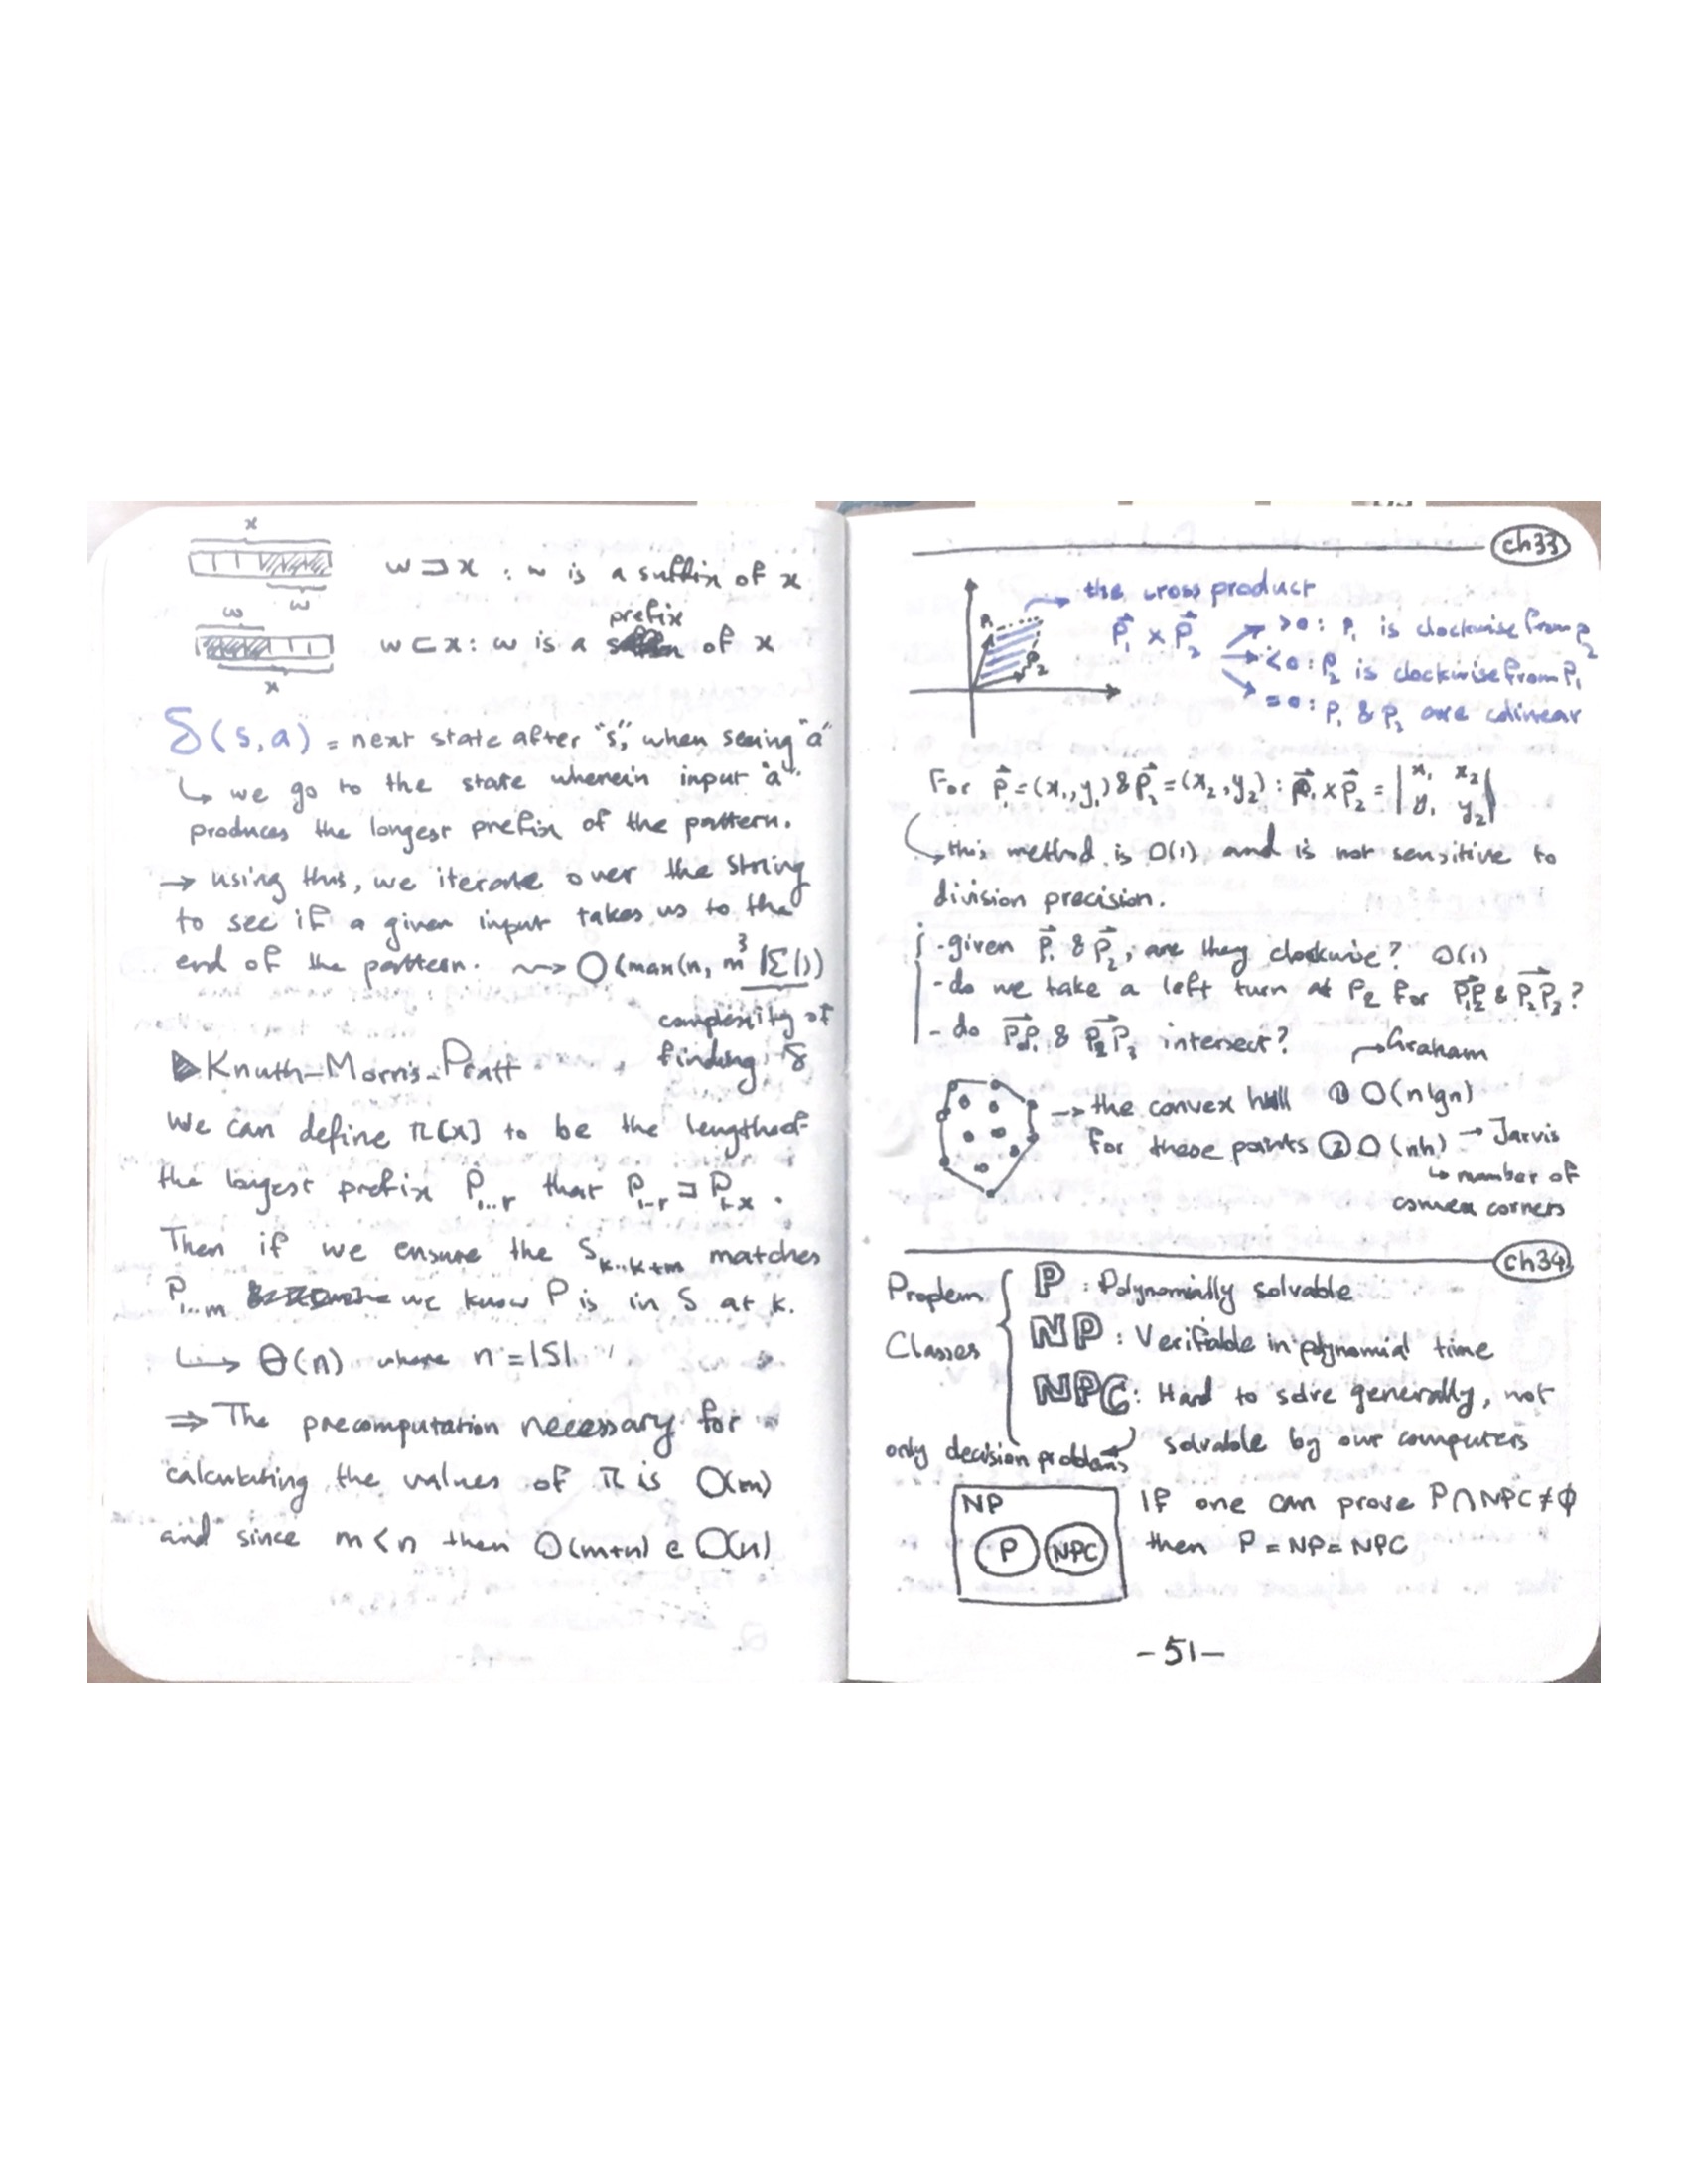 x
w ⊐ x : w is a suffix of x
w
w
prefix
w ⊏ x : w is a of x
x
δ(s,a) = next state after "s", when seeing "a"
↳ we go to the state wherein input "a"
produces the longest prefix of the pattern.
→ using this, we iterate over the string
to see if a given input takes us to the
end of the pattern. ⇝ O(max(n, m³|Σ|))
complexity of
finding δ
▶ Knuth-Morris-Pratt
We can define π[x] to be the length of
the largest prefix P₁..r that P₁..r ⊐ P₁..x .
Then if we ensure the S k..k+m matches
P₁..m we know P is in S at k.
↳ Θ(n) where n = |S|
⇒ The precomputation necessary for
calculating the values of π is O(m)
and since m < n then O(m+n) ∈ O(n)
ch33
the cross product
P₁
P₂
P₁ × P₂
>0 : P₁ is clockwise from P₂
<0 : P₂ is clockwise from P₁
=0 : P₁ & P₂ are colinear
For P₁ = (x₁, y₁) & P₂ = (x₂, y₂) : P₁ × P₂ = | x₁ x₂
y₁ y₂ |
↳ this method is O(1) and is not sensitive to
division precision.
- given P₁ & P₂, are they clockwise? O(1)
- do we take a left turn at P₂ for P₁P₂ & P₂P₃ ?
- do P₀P₁ & P₂P₃ intersect?
→ Graham
→ the convex hull ① O(n lg n)
for these points ② O(nh) → Jarvis
↳ number of
convex corners
ch34
Proplem
Classes
P : Polynomially solvable
NP : Verifiable in polynomial time
NPC : Hard to solve generally, not
solvable by our computers
only decision problems
NP
P
NPC
If one can prove P ∩ NPC ≠ ∅
then P = NP = NPC
-51-